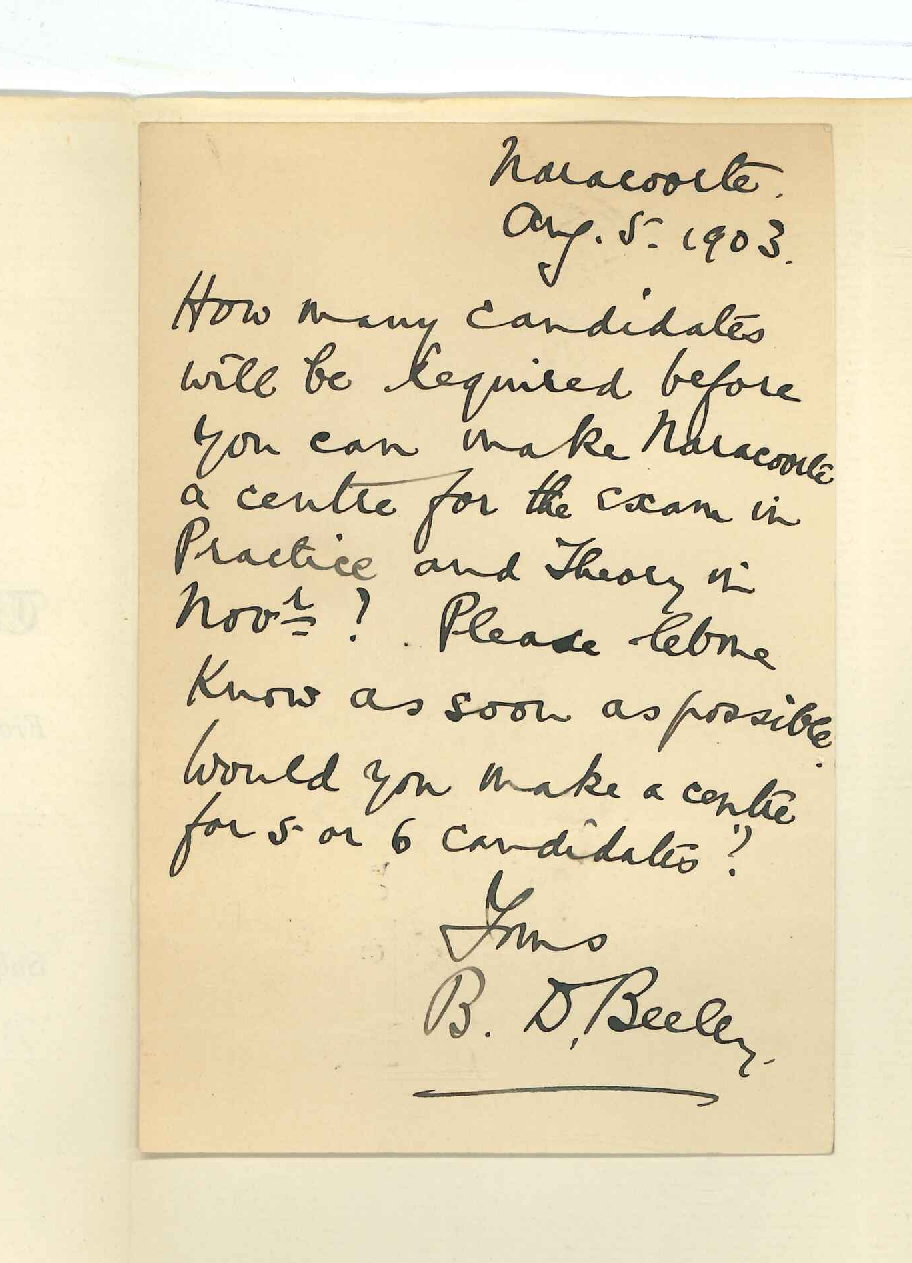 Naracoorte.
Aug. 5. 1903.
How many candidates
will be required before
you can make Naracoorte
a centre for the exam in
Practice and Theory in
Novr ? . Please let me
know as soon as possible.
Would you make a centre
for 5 or 6 candidates ?
Yours
B. D. Beeley.